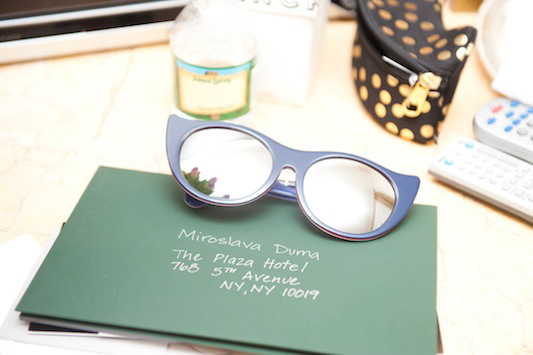 Miroslava Duma
The Plaza Hotel
768 5TH Avenue
NY, NY 10019